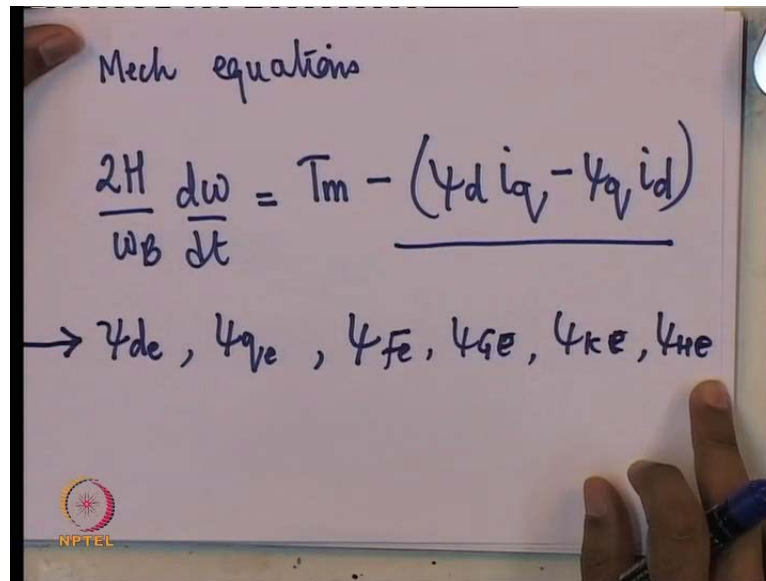 Mech equations
2H/ωB dω/dt = Tm - (ψd iq - ψq id)
→ ψde, ψqe, ψFe, ψGe, ψKe, ψHe
NPTEL